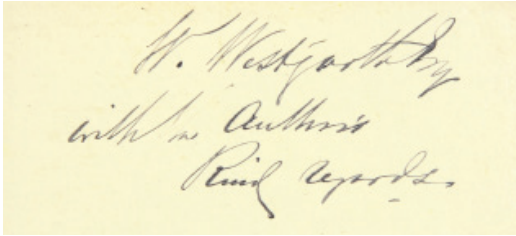 W. Westgarth Esq
with the Author's
Kind regards.